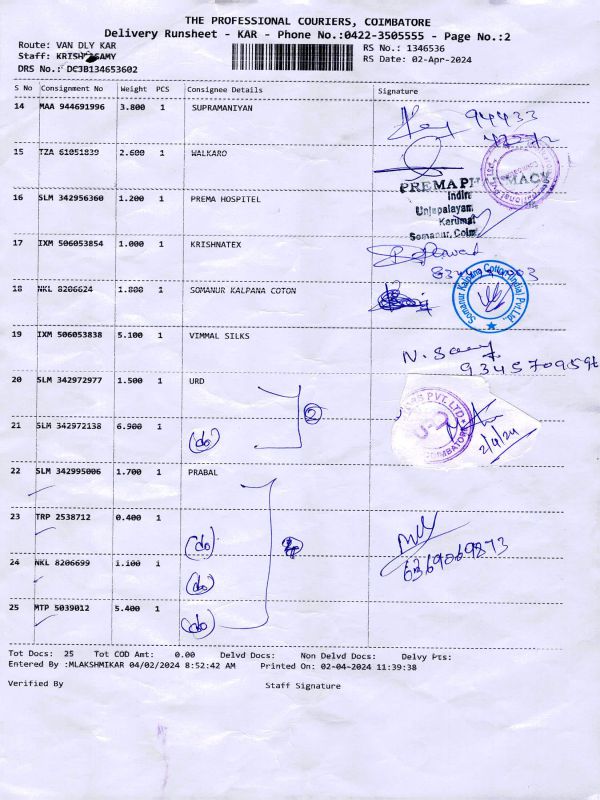 THE PROFESSIONAL COURIERS, COIMBATORE
Delivery Runsheet - KAR - Phone No.:0422-3505555 - Page No.:2
Route: VAN DLY KAR
RS No.: 1346536
Staff: KRISHNASAMY
RS Date: 02-Apr-2024
DRS No.: DCJB134653602
S No Consignment No Weight PCS Consignee Details Signature
14 MAA 944691996 3.800 1 SUPRAMANIYAN
94433
15 TZA 61051839 2.600 1 WALKARO
PREMA PHARMACY
16 SLM 342956360 1.200 1 PREMA HOSPITEL
Unjapalayam
Karumat
Somanur, Coim
17 IXM 506053854 1.000 1 KRISHNATEX
18 NKL 8206624 1.800 1 SOMANUR KALPANA COTON
Somanur Kalpana Cotton India Pvt.Ltd.
19 IXM 506053838 5.100 1 VIMMAL SILKS
9345709596
20 SLM 342972977 1.500 1 URD
2
PVT.LTD
U-2
COIMBATORE
2/4/24
21 SLM 342972138 6.900 1
(do)
22 SLM 342995006 1.700 1 PRABAL
23 TRP 2538712 0.400 1
(do)
6369069873
24 NKL 8206699 1.100 1
(do)
25 MTP 5039012 5.400 1
(do)
Tot Docs: 25 Tot COD Amt: 0.00 Delvd Docs: Non Delvd Docs: Delvy Pts:
Entered By :MLAKSHMIKAR 04/02/2024 8:52:42 AM Printed On: 02-04-2024 11:39:38
Verified By Staff Signature